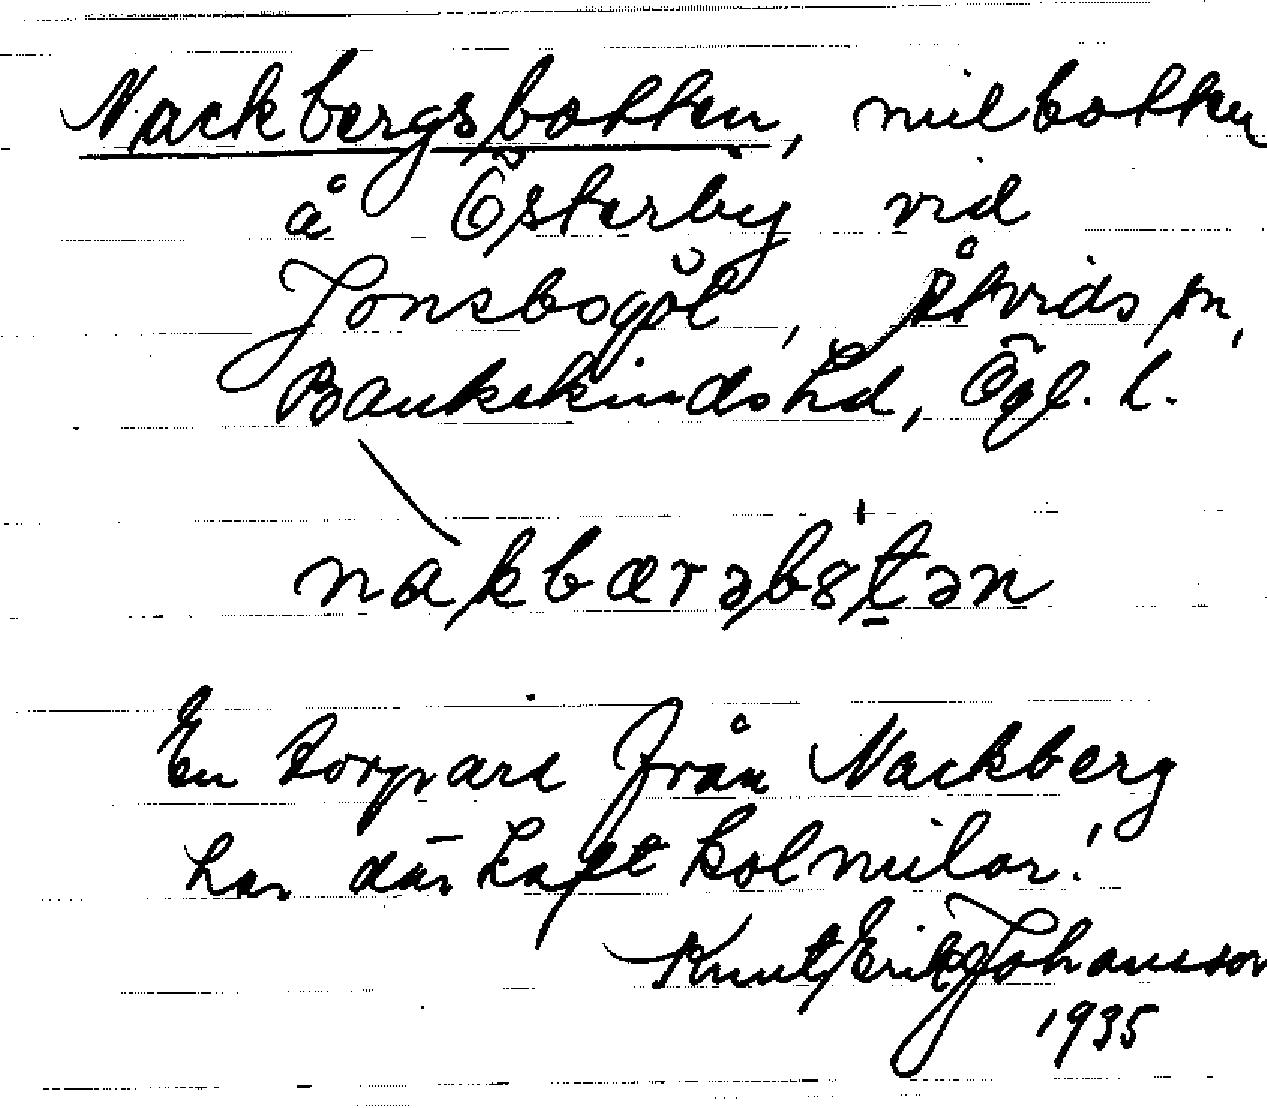 Nackbergsbotten, milbotten
å Österby vid
Jonsbogöl, Åtvids sn,
Bankekinds hd, Ögl. l.
nakbærəbßtən
En torpare från Nackberg
har där haft kolmilor!
Knut Erik Johansson
1935